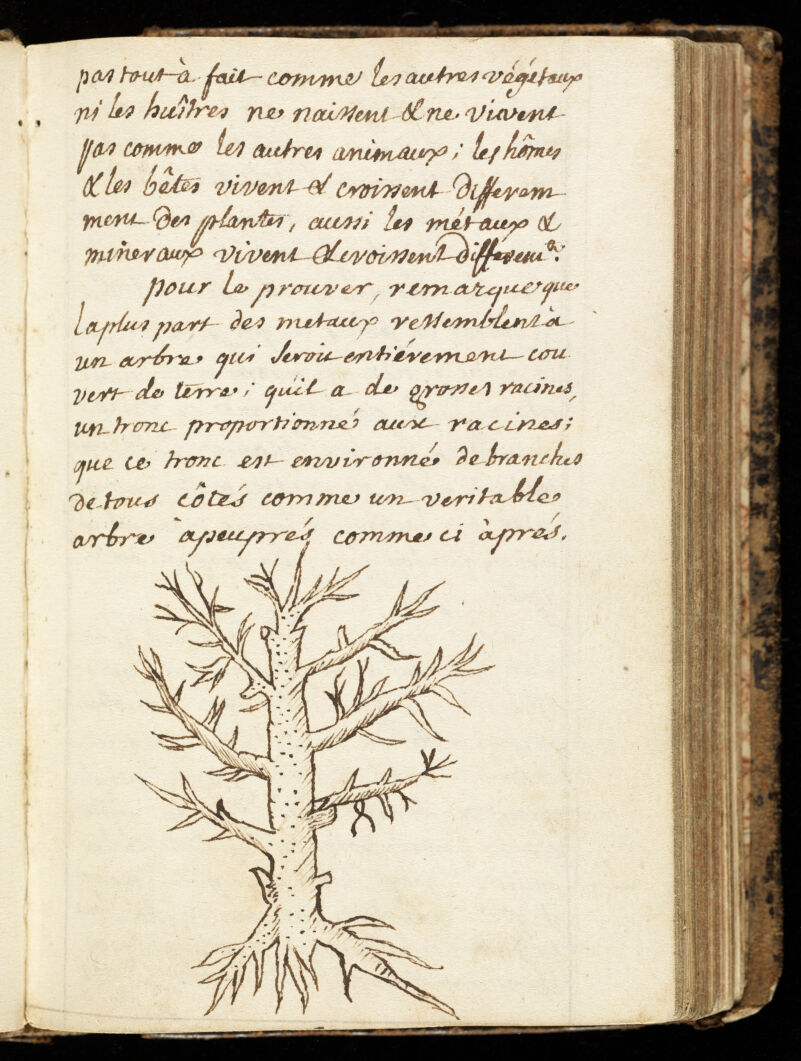 pas tout à fait comme les autres végétaux
ni les huîtres ne naissent & ne vivent
pas comme les autres animaux ; les hômes
& les bêtes vivent & croissent differem
ment des plantes, aussi les métaux &
mineraux vivent & croissent différem.t
pour le prouver, remarque que
la plus part des metaux ressemblent à
un arbre qui seroit entiérement cou
vert de terre ; qu'il a de grosses racines,
un tronc proportionné aux racines ;
que ce tronc est environné de branches
de tous côtés comme un veritable
arbre àpeuprés comme ci àprés.